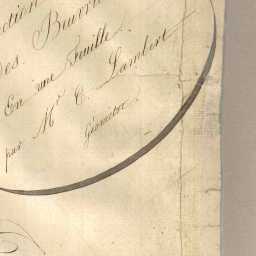 ction
es. Beuvr
En une Feuille.
par Mr. C. Lambert
Géomètre.